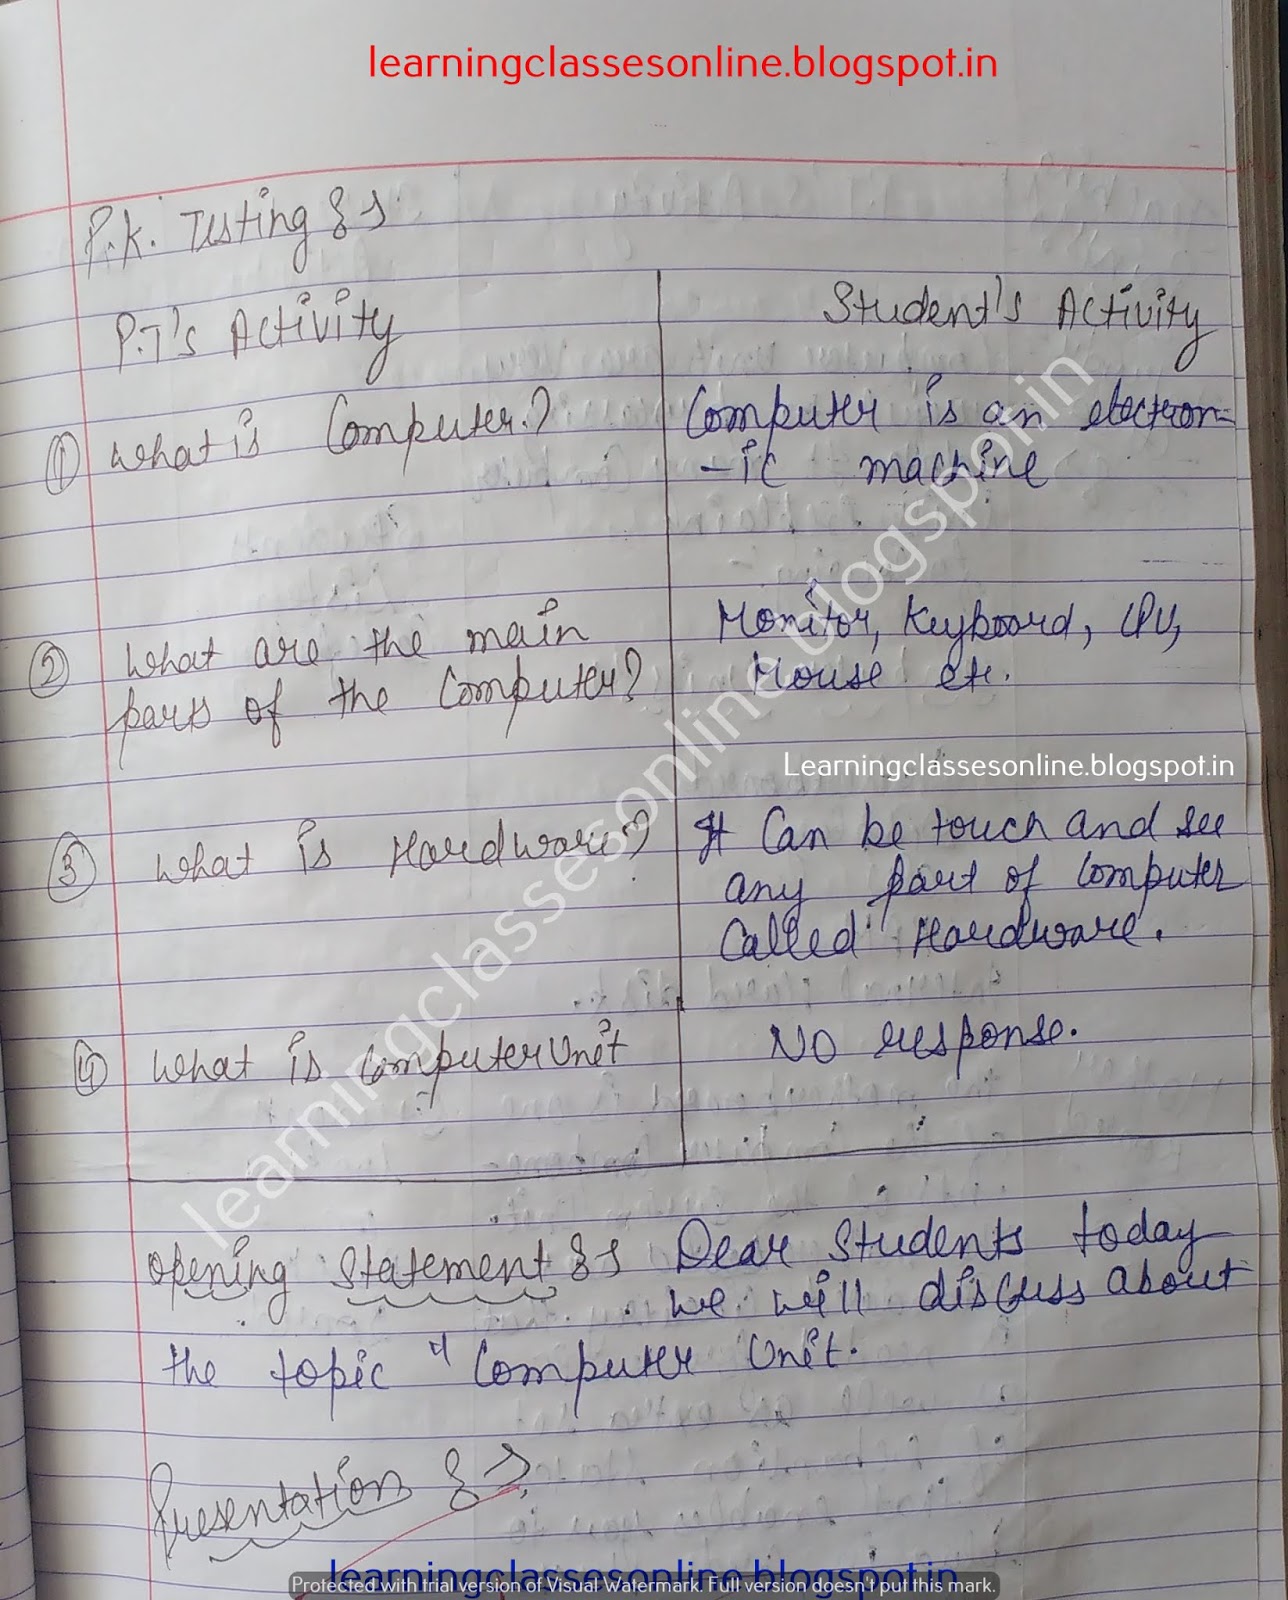 learningclassesonline.blogspot.in
P.K. Testing :->
P.T's Activity
Student's Activity
① What is Computer?
Computer is an electron-
-ic machine
② What are the main
parts of the Computer?
Monitor, Keyboard, CPU,
Mouse etc.
Learningclassesonline.blogspot.in
③ What is Hardware?
It Can be touch and see
any part of Computer
Called Hardware.
④ What is Computer Unit
?
No response.
learningclassesonline.blogspot.in
Opening Statement :-> Dear Students today
we will discuss about
the topic " Computer Unit.
Presentation :->
learningclassesonline.blogspot.in
Protected with trial version of Visual Watermark. Full version doesn't put this mark.